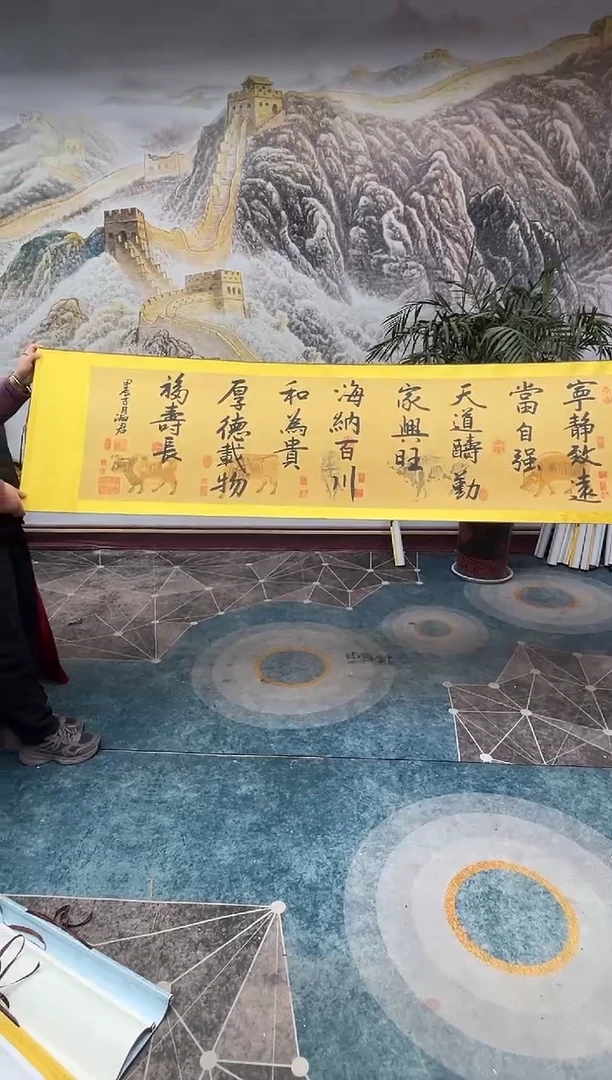 寧静致遠
當自强
天道酬勤
家興旺
海納百川
和為貴
厚德載物
福壽長